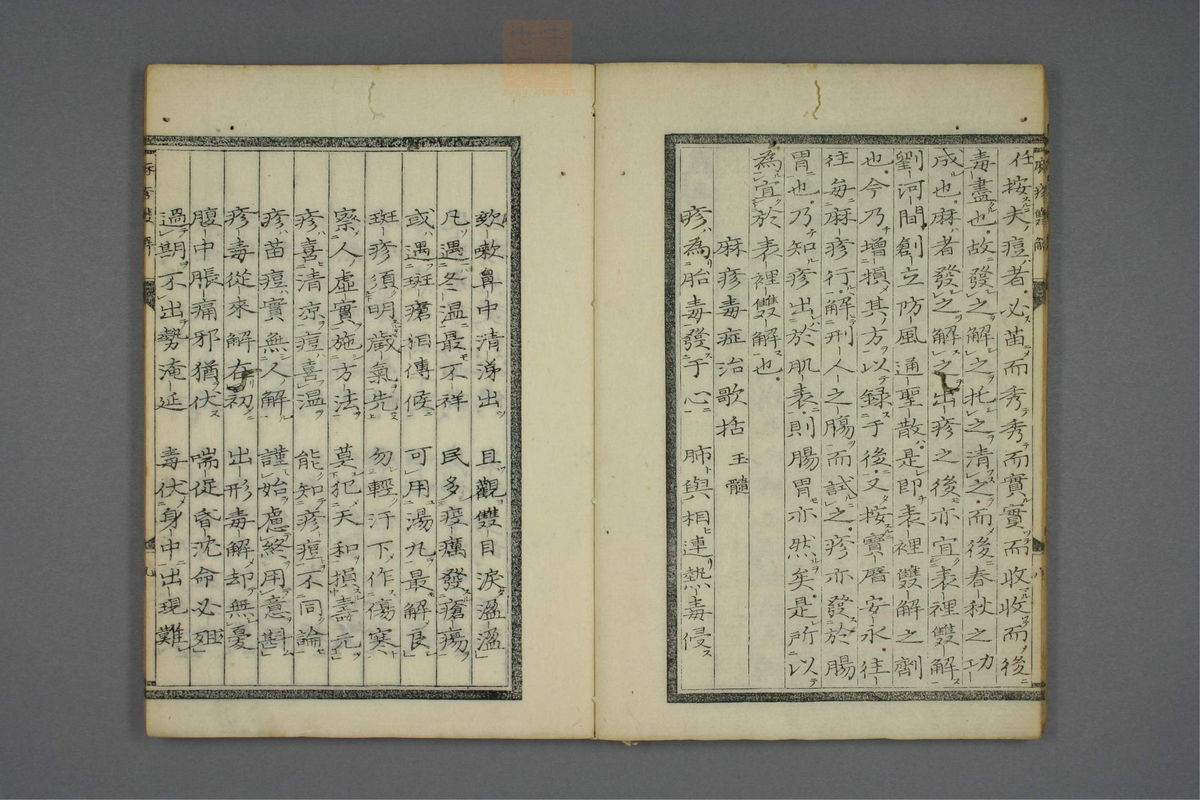 任按夫痘者必苗而秀秀而實實而收收而後
毒盡也故發之解之托之清之而後春秋之功
成也麻者發之解之之出疹之後亦宜表裡雙解
劉河間創立防風通聖散是即表裡雙解之劑
也今乃增損其方以録于後又按寶曆安永往
往毎麻疹行解刑人之腸而試之疹亦發於腸
胃也乃知疹出於肌表則腸胃亦然矣是所以
為宜於表裡雙解也
麻疹毒症治歌括 玉髓
疹為胎毒發于心 肺與相連熱毒侵
欬嗽鼻中清涕出 且觀雙目淚溫溫
凡遇冬温最不祥 民多疫癘發瘡瘍
或遇斑瘡相傳候 可用湯丸最解良
斑疹須明歲氣先 勿輕汗下作傷寒
察人虛實施方法 莫犯天和損壽元
疹喜清凉痘喜温 能知疹痘不同論
疹苗痘實無人解 謹始慮終用意斟
疹毒從來解在初 出形毒解却無憂
腹中脹痛邪猶伏 喘促昏沈命必殂
過期不出勢淹延 毒伏身中出現難
麻疹雙解
八
麻疹雙解
九